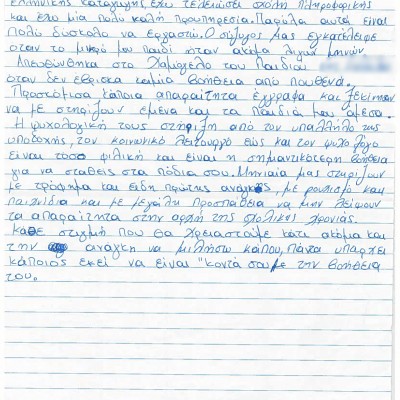 ελληνικής καταγωγής έχω τελειώσει σχολή πληροφορικής
και έχω μία πολύ καλή προϋπηρεσία. Παρ'όλα αυτά είναι
πολύ δύσκολο να εργαστώ. Ο σύζυγος μας εγκατέλειψε
όταν το μικρό μου παιδί ήταν ακόμα λίγων μηνών
Απευθύνθηκα στο Χαμόγελο του Παιδιού
όταν δεν έβρισκα καμία βοήθεια από πουθενά.
Προσκόμισα κάποια απαραίτητα έγγραφα και ξεκίνησαν
να με στηρίζουν εμένα και τα παιδιά μου άμεσα.
Η ψυχολογική τους στήριξη από τον υπάλληλο της
υποδοχής, τον κοινωνικό λειτουργό εώς και τον ψυχολόγο
είναι τόσο φιλική και είναι η σημαντικότερη βοήθεια
για να σταθείς στα πόδια σου. Μηνιαία μας στηρίζουν
με τρόφιμα και είδη πρώτης ανάγκης, με ρουχισμό και
παιχνίδια και με μεγάλη προσπάθεια να μην λείψουν
τα απαραίτητα στην αρχή της σχολικής χρονιάς.
κάθε στιγμή που θα χρειαστούμε κάτι ακόμα και
την ανάγκη να μιλήσω κάπου, πάντα υπάρχει
κάποιος εκεί να είναι "κοντά σου με την βοήθεια
του.